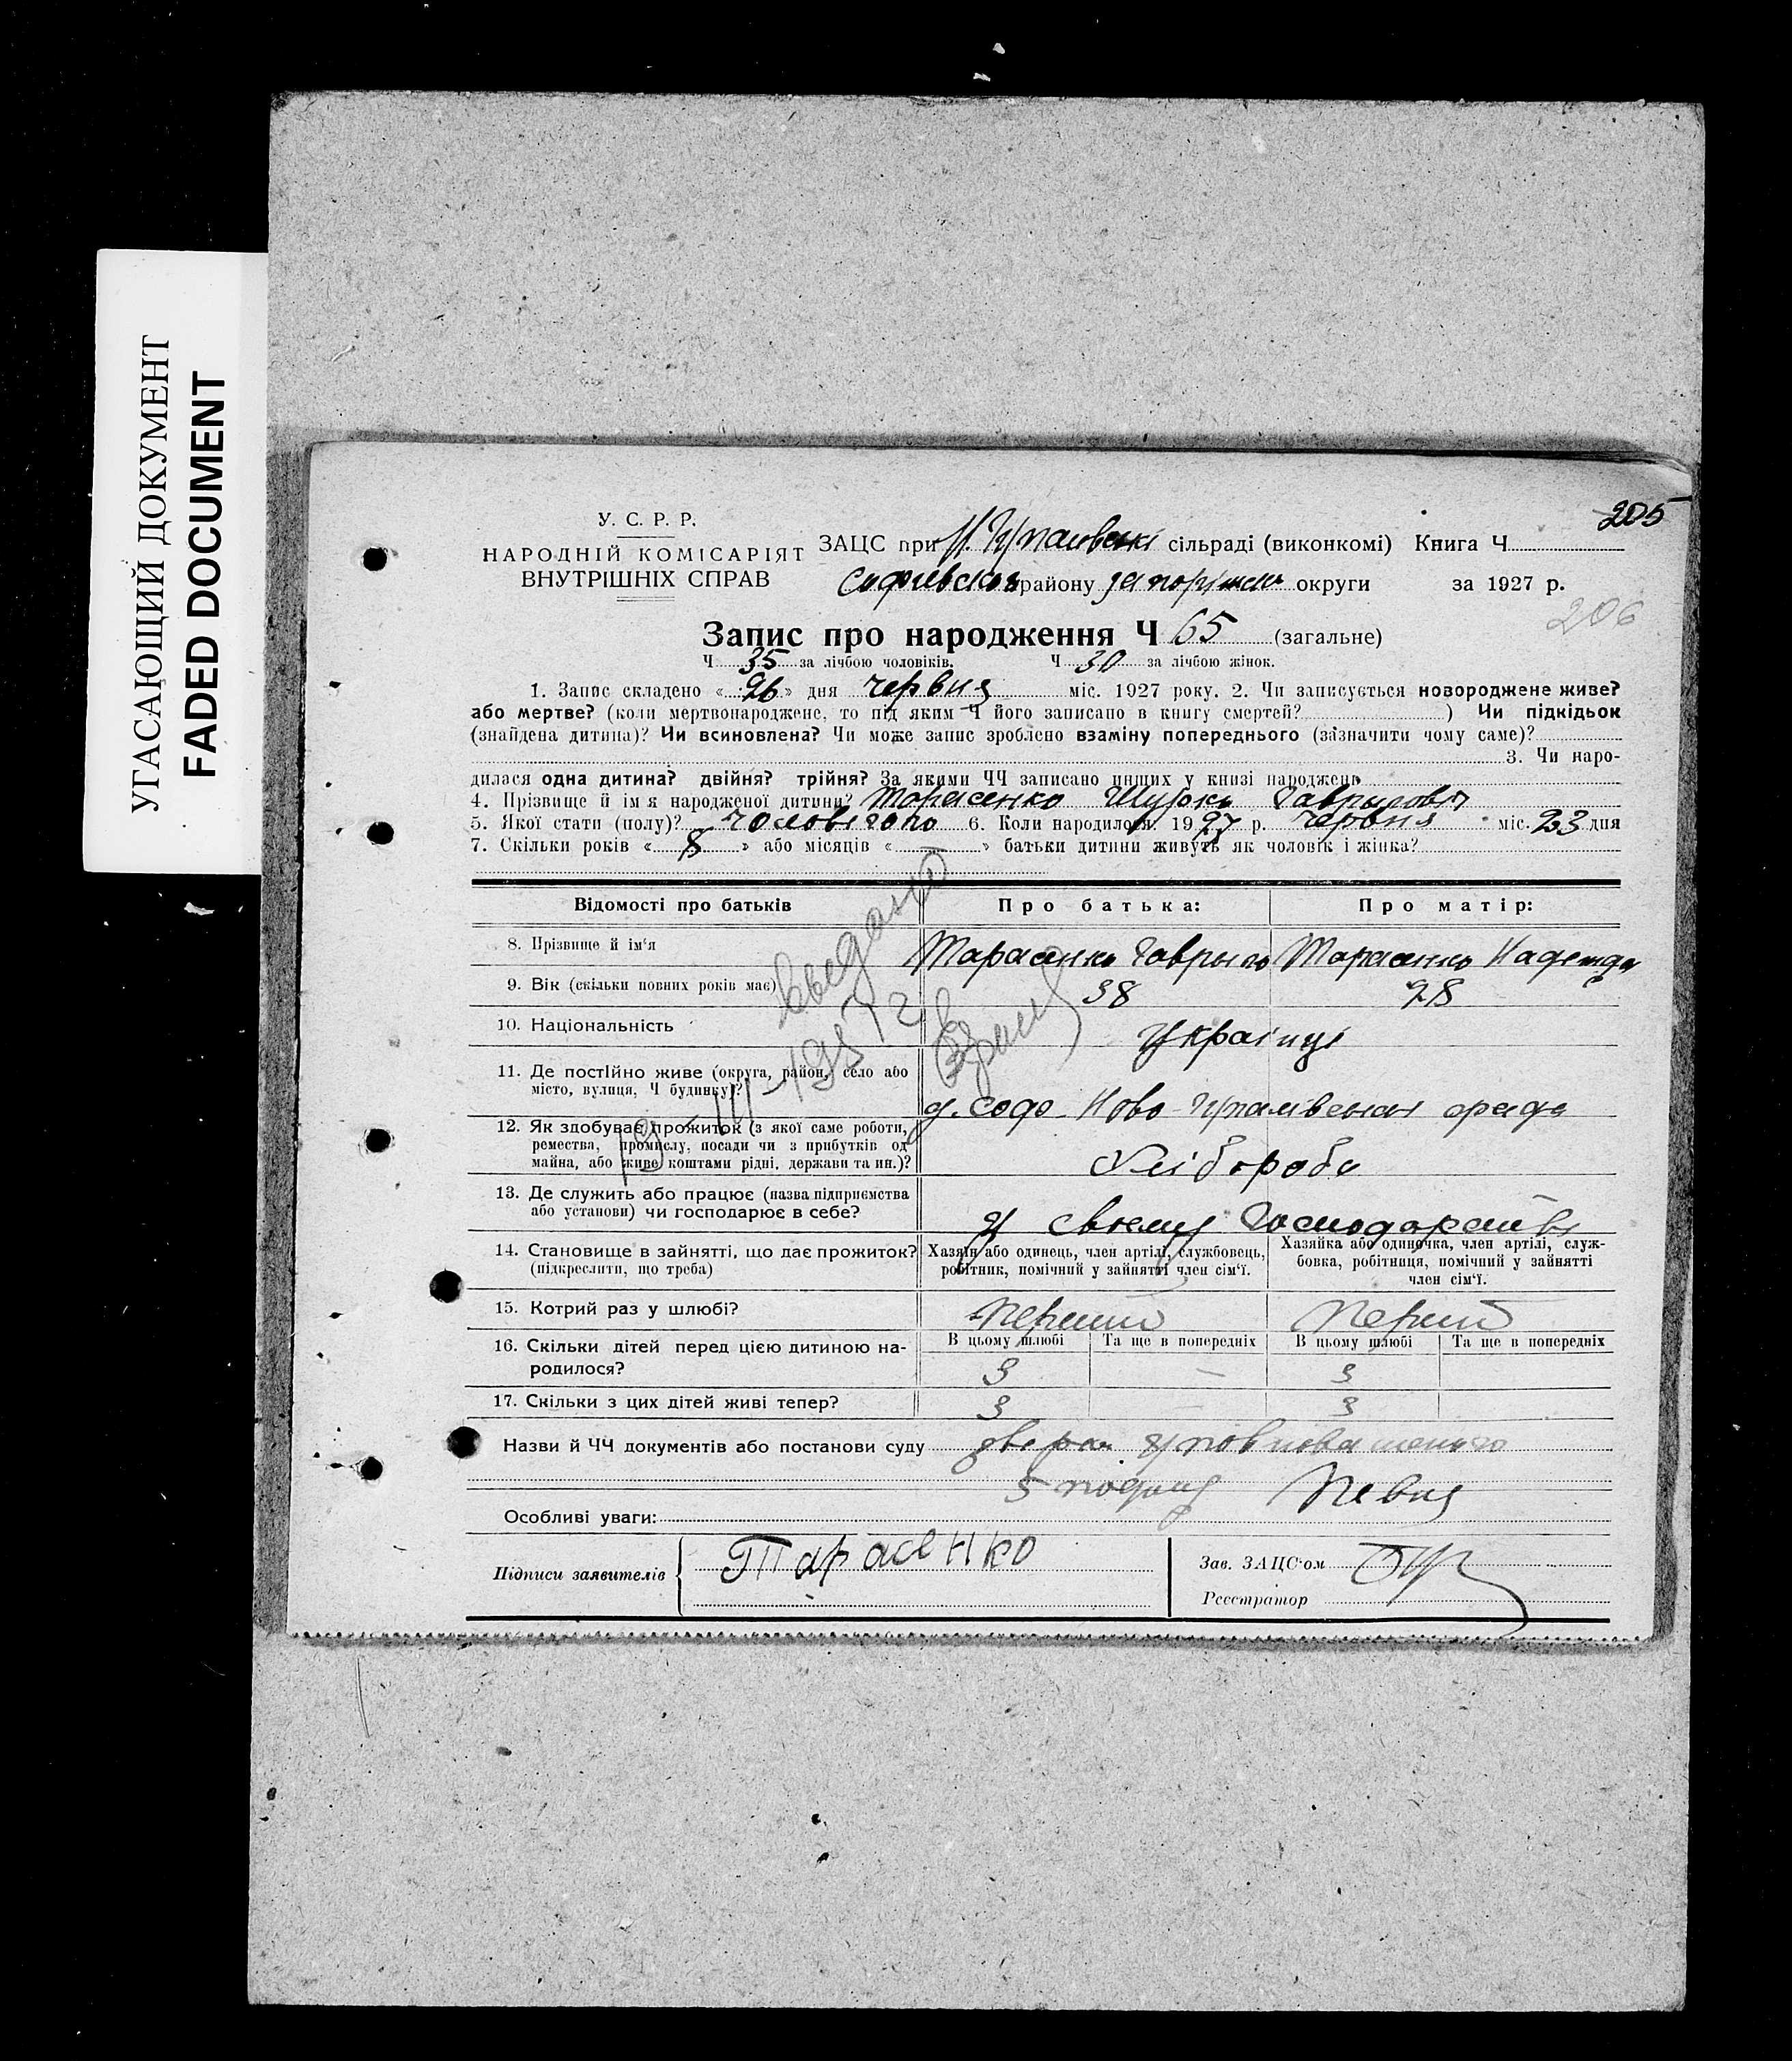 УГАСАЮЩИЙ ДОКУМЕНТ
FADED DOCUMENT
205
У. С. Р. Р.
НАРОДНІЙ КОМІСАРІЯТ
ВНУТРІШНІХ СПРАВ
ЗАЦС при сільраді (виконкомі) Книга Ч
району округи за 1927 р.
206
Запис про народження Ч 65 (загальне)
Ч 35 за лічбою чоловіків. Ч 30 за лічбою жінок.
1. Запис складено « 26 » дня червня міс. 1927 року. 2. Чи записується новороджене живе?
або мертве? (коли мертвонароджене, то під яким Ч його записано в книгу смертей? ) Чи підкідьок
(знайдена дитина)? Чи всиновлена? Чи може запис зроблено взаміну попереднього (зазначити чому саме)?
3. Чи наро-
дилася одна дитина? двійня? трійня? За якими ЧЧ записано инших у книзі народжень
4. Прізвище й ім'я народженої дитини? Тарасенко Шурко
5. Якої стати (полу)? 6. Коли народилося 1927 р. червня міс. 23 дня
7. Скільки років « 8 » або місяців « — » батьки дитини живуть як чоловік і жінка?
Відомості про батьків Про батька: Про матір:
8. Прізвище й ім'я Тарасенко Гаврыло Тарасенко Надежда
9. Вік (скільки повних років має) 38 28
10. Національність Українці
11. Де постійно живе (округа, район, село або
місто, вулиця, Ч будинку)?
12. Як здобуває прожиток (з якої саме роботи,
ремества, промислу, посади чи з прибутків од
майна, або живе коштами рідні, держави та ин.)? Хлібороби
13. Де служить або працює (назва підприємства
або установи) чи господарює в себе? У своему Господарстві
14. Становище в зайнятті, що дає прожиток? Хазяїн або одинець, член артілі, службовець, Хазяйка або одиночка, член артілі, служ-
(підкреслити, що треба) робітник, помічний у зайнятті член сім'ї. бовка, робітниця, помічний у зайнятті
член сім'ї.
15. Котрий раз у шлюбі? Перший Перший
В цьому шлюбі Та ще в попередніх В цьому шлюбі Та ще в попередніх
16. Скільки дітей перед цією дитиною на-
родилося? 3 — 3
17. Скільки з цих дітей живі тепер? 3 — 3
Назви й ЧЧ документів або постанови суду
Особливі уваги:
Підписи заявителів Тарасенко
Зав. ЗАЦС'ом
Реєстратор